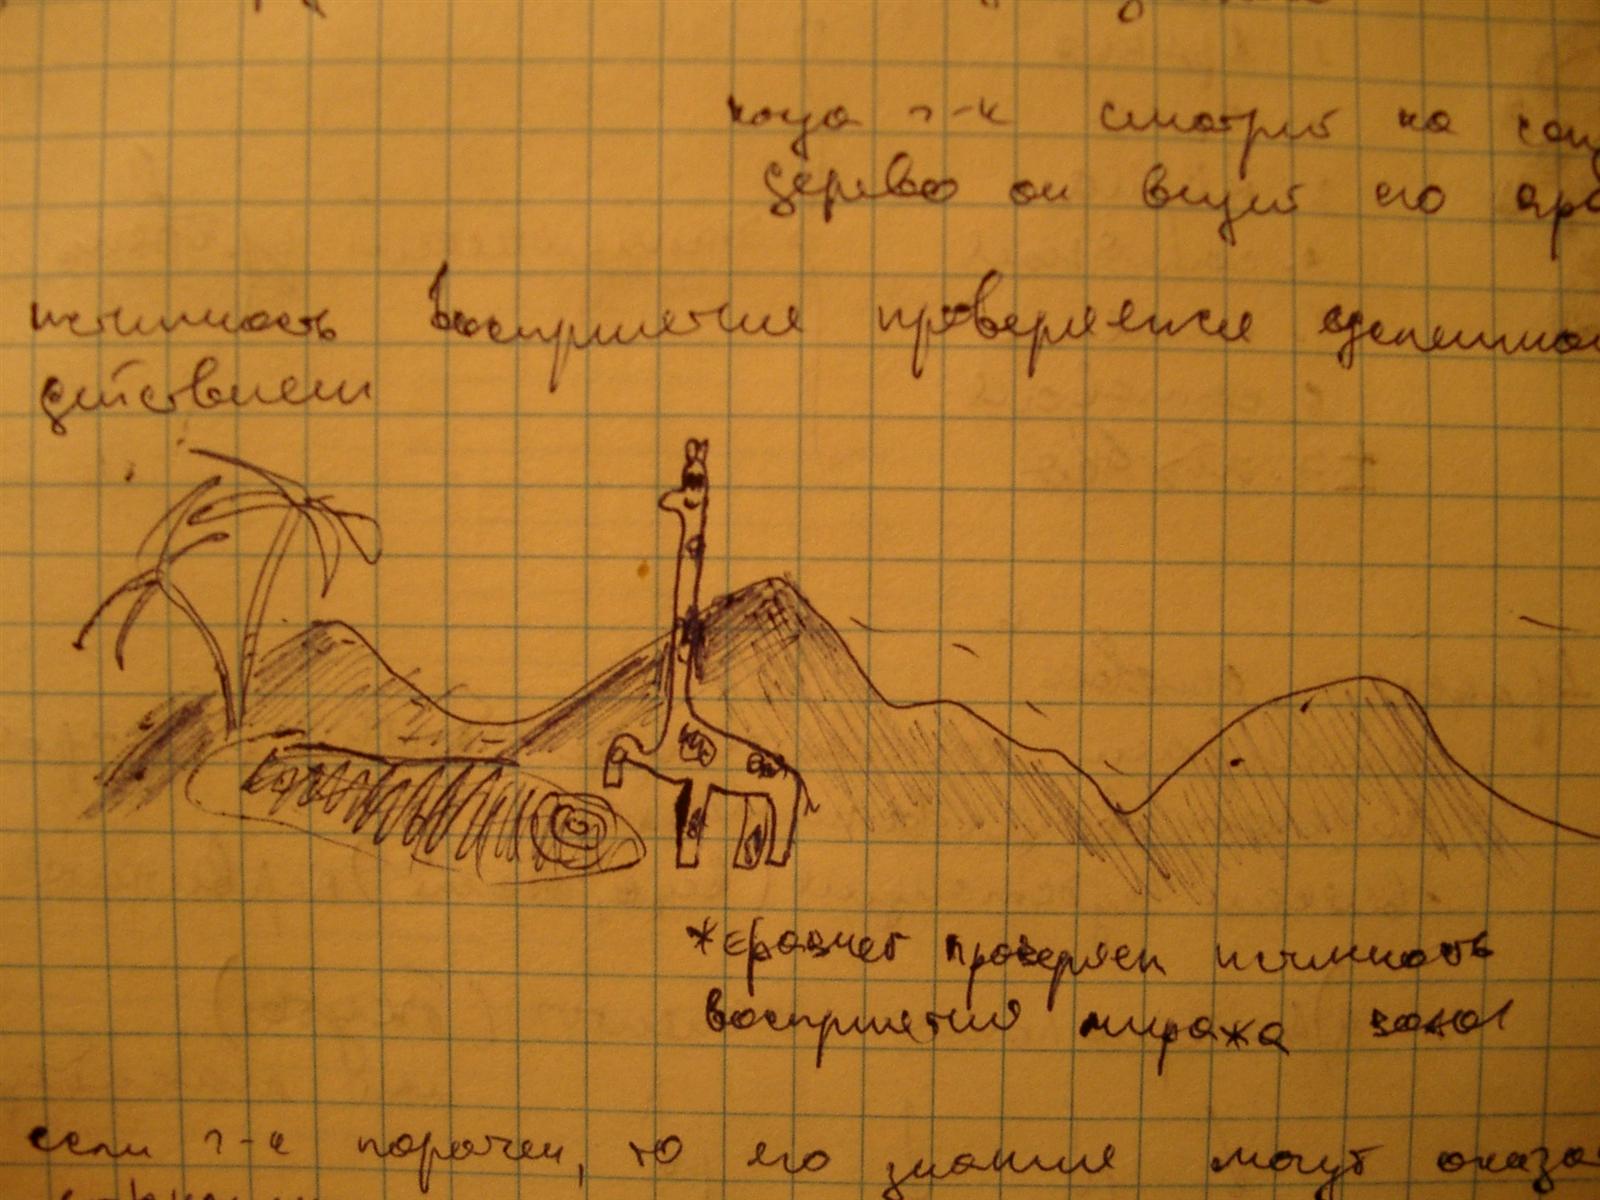 когда ч-к смотрит на
дерево он видит его
истинность восприятия проверяется
действием
жеравчег проверяет истинность
восприятия миража
если ч-к порочен, то его знание могут